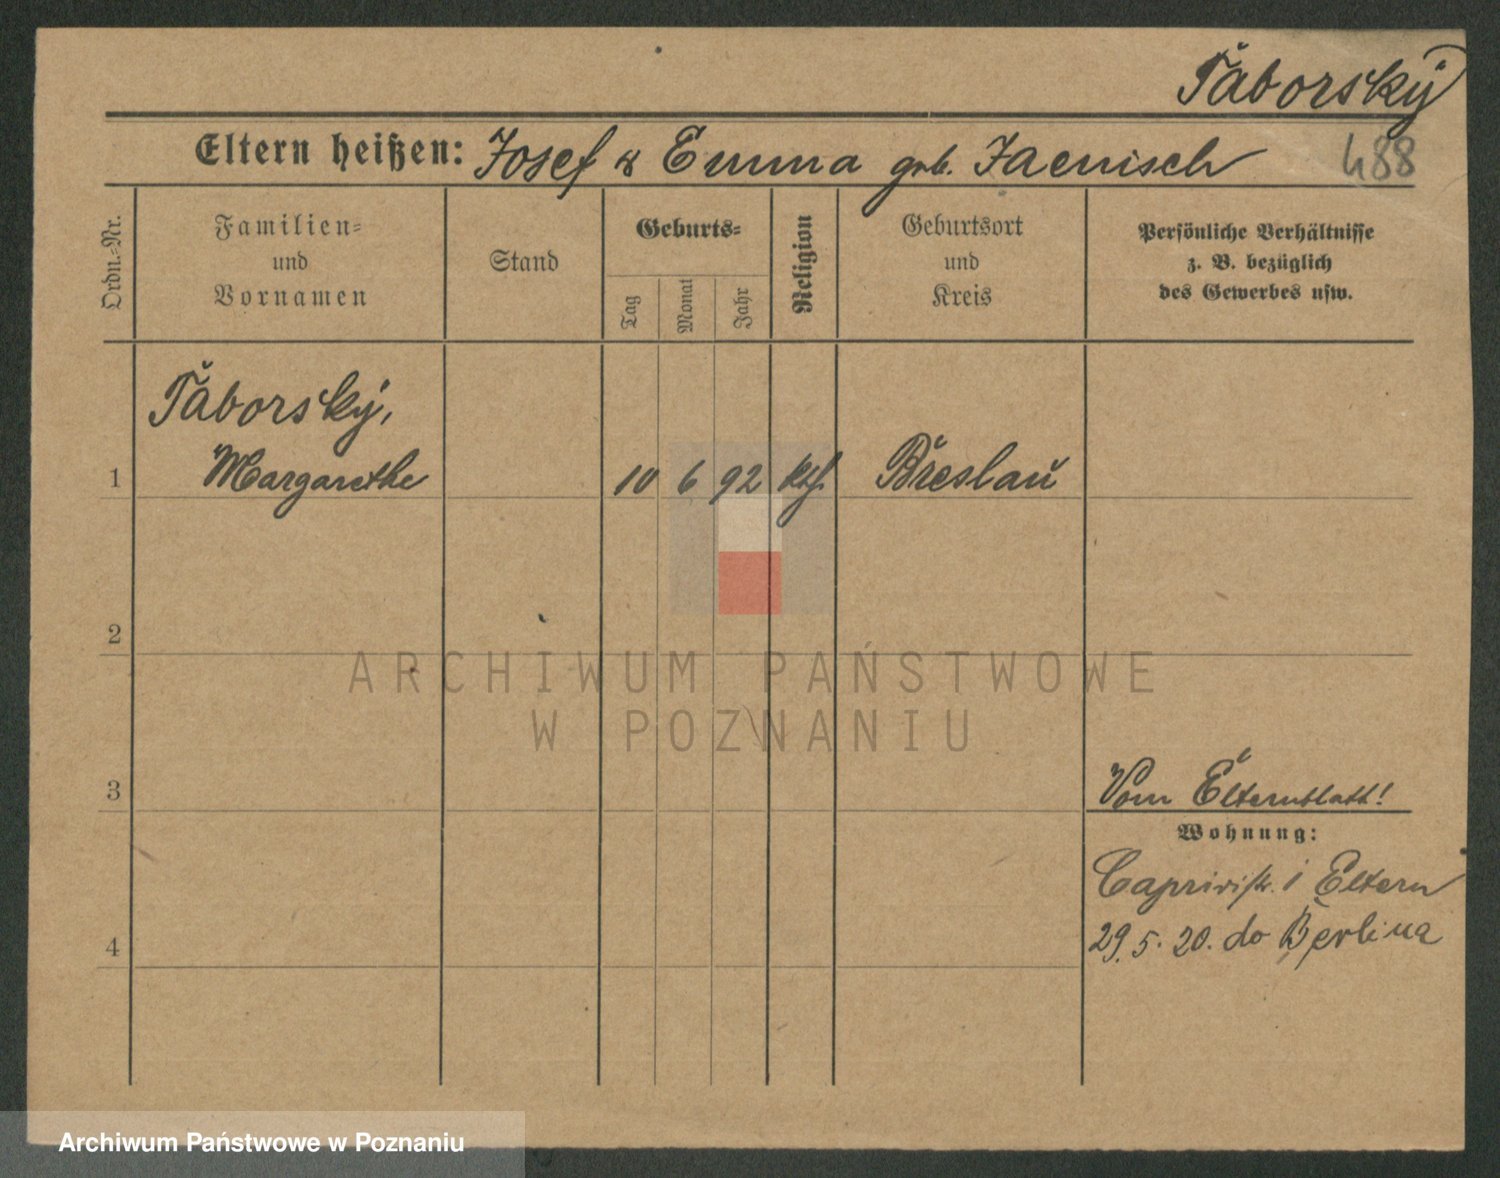 Táborský
Eltern heißen: Josef & Emma geb. Jaenisch
488
Ordn.-Nr.
Familien-
und
Vornamen
Stand
Geburts-
Tag
Monat
Jahr
Religion
Geburtsort
und
Kreis
Persönliche Verhältnisse
z. B. bezüglich
des Gewerbes usw.
Táborský,
1 Margarethe 10 6 92 kth. Breslau
2
ARCHIWUM PAŃSTWOWE
W POZNANIU
3 Vom Elternblatt!
Wohnung:
Caprivistr. Eltern
4 29. 5. 20. do Berlina
Archiwum Państwowe w Poznaniu